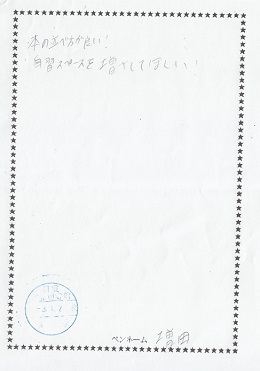 本の並べ方が良い!
自習スペースを増やしてほしい!
ペンネーム 増田